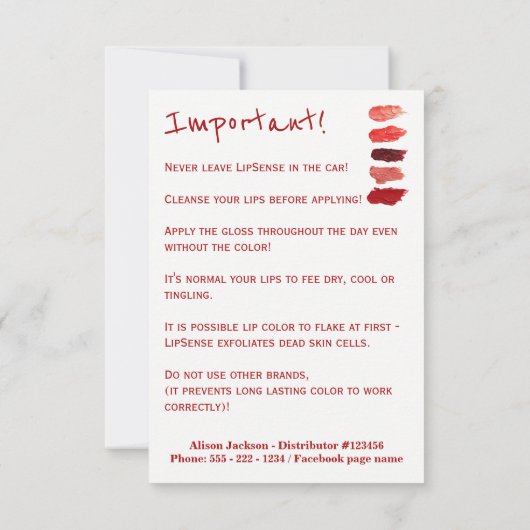 Important!
Never leave LipSense in the car!
Cleanse your lips before applying!
Apply the gloss throughout the day even
without the color!
It's normal your lips to fee dry, cool or
tingling.
It is possible lip color to flake at first -
LipSense exfoliates dead skin cells.
Do not use other brands,
(it prevents long lasting color to work
correctly)!
Alison Jackson - Distributor #123456
Phone: 555 - 222 - 1234 / Facebook page name